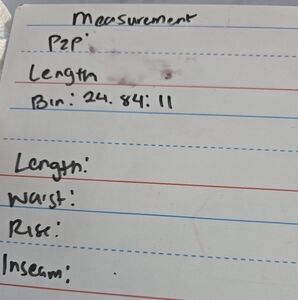 Measurement
P2P:
Length
Bin: 24.84:11
Length:
Waist:
Rise:
Inseam: